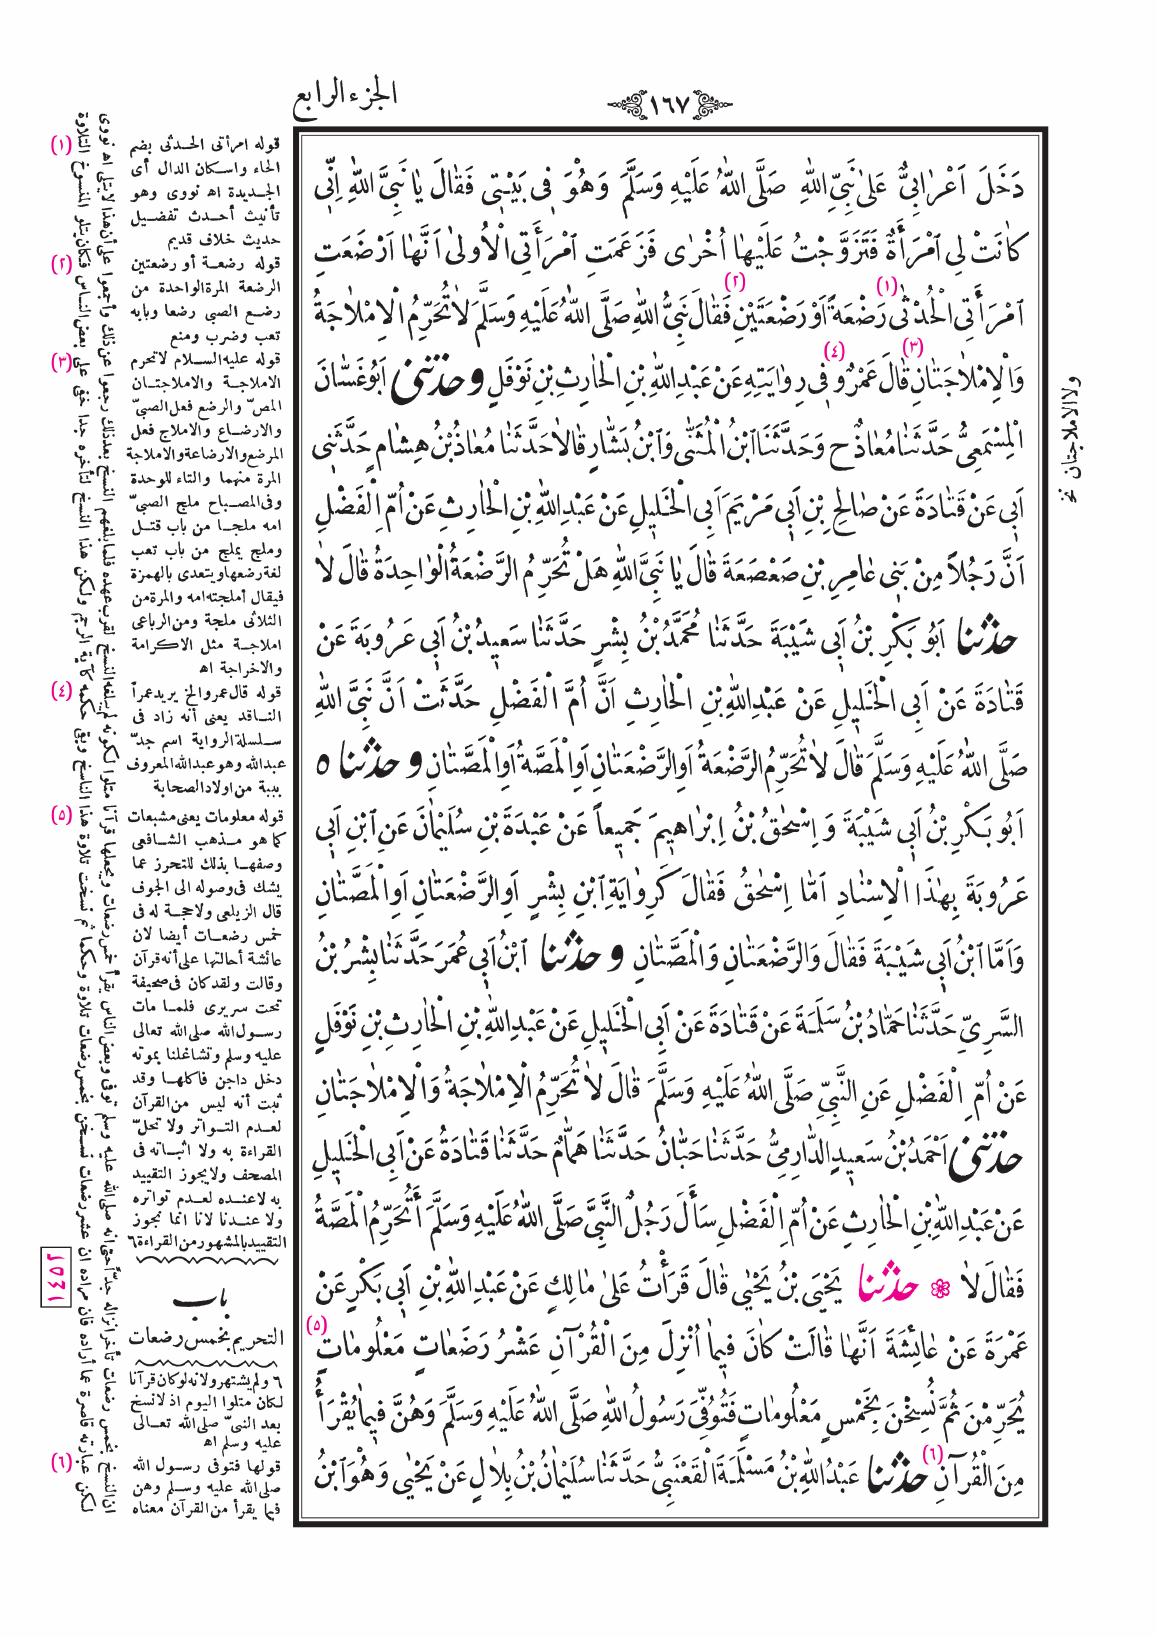 الجزء الرابع
١٦٧
دَخَلَ اَعْرَابِىٌّ عَلىٰ نَبِىِّ اللهِ صَلَّى اللهُ عَلَيْهِ وَسَلَّمَ وَهُوَ فِى بَيْتِى فَقَالَ يَا نَبِىَّ اللهِ اِنِّى
كَانَتْ لِى اَمْرَأَةٌ فَتَزَوَّجْتُ عَلَيْهَا اُخْرٰى فَزَعَمَتِ اَمْرَأَتِى الْاُولىٰ اَنَّهَا اَرْضَعَتِ
اَمْرَأَتِى الْحُدْثٰى (١) رَضْعَةً اَوْ رَضْعَتَيْنِ (٢) فَقَالَ نَبِىُّ اللهِ صَلَّى اللهُ عَلَيْهِ وَسَلَّمَ لَا تُحَرِّمُ الْاِمْلَاجَةُ
وَالْاِمْلَاجَتَانِ (٣) قَالَ عَمْرٌو (٤) فِى رِوَايَتِهِ عَنْ عَبْدِ اللهِ بْنِ الْحَارِثِ بْنِ نَوْفَلٍ وحدثنى اَبُو غَسَّانَ
الْمِسْمَعِىُّ حَدَّثَنَا مُعَاذٌ ح وَحَدَّثَنَا ابْنُ الْمُثَنّٰى وَابْنُ بَشَّارٍ قَالَا حَدَّثَنَا مُعَاذُ بْنُ هِشَامٍ حَدَّثَنِى
اَبِى عَنْ قَتَادَةَ عَنْ صَالِحِ بْنِ اَبِى مَرْيَمَ اَبِى الْخَلِيلِ عَنْ عَبْدِ اللهِ بْنِ الْحَارِثِ عَنْ اُمِّ الْفَضْلِ
اَنَّ رَجُلاً مِنْ بَنِى عَامِرِ بْنِ صَعْصَعَةَ قَالَ يَا نَبِىَّ اللهِ هَلْ تُحَرِّمُ الرَّضْعَةُ الْوَاحِدَةُ قَالَ لَا
حدثنا اَبُو بَكْرِ بْنُ اَبِى شَيْبَةَ حَدَّثَنَا مُحَمَّدُ بْنُ بِشْرٍ حَدَّثَنَا سَعِيدُ بْنُ اَبِى عَرُوبَةَ عَنْ
قَتَادَةَ عَنْ اَبِى الْخَلِيلِ عَنْ عَبْدِ اللهِ بْنِ الْحَارِثِ اَنَّ اُمَّ الْفَضْلِ حَدَّثَتْ اَنَّ نَبِىَّ اللهِ
صَلَّى اللهُ عَلَيْهِ وَسَلَّمَ قَالَ لَا تُحَرِّمُ الرَّضْعَةُ اَوِ الرَّضْعَتَانِ اَوِ الْمَصَّةُ اَوِ الْمَصَّتَانِ و حدثنا ٥
اَبُو بَكْرِ بْنُ اَبِى شَيْبَةَ وَ اِسْحٰقُ بْنُ اِبْرَاهِيمَ جَمِيعاً عَنْ عَبْدَةَ بْنِ سُلَيْمَانَ عَنِ ابْنِ اَبِى
عَرُوبَةَ بِهٰذَا الْاِسْنَادِ اَمَّا اِسْحٰقُ فَقَالَ كَرِوَايَةِ ابْنِ بِشْرٍ اَوِ الرَّضْعَتَانِ اَوِ الْمَصَّتَانِ
وَاَمَّا ابْنُ اَبِى شَيْبَةَ فَقَالَ وَالرَّضْعَتَانِ وَالْمَصَّتَانِ و حدثنا ابْنُ اَبِى عُمَرَ حَدَّثَنَا بِشْرُ بْنُ
السَّرِىِّ حَدَّثَنَا حَمَّادُ بْنُ سَلَمَةَ عَنْ قَتَادَةَ عَنْ اَبِى الْخَلِيلِ عَنْ عَبْدِ اللهِ بْنِ الْحَارِثِ بْنِ نَوْفَلٍ
عَنْ اُمِّ الْفَضْلِ عَنِ النَّبِىِّ صَلَّى اللهُ عَلَيْهِ وَسَلَّمَ قَالَ لَا تُحَرِّمُ الْاِمْلَاجَةُ وَالْاِمْلَاجَتَانِ
حدثنى اَحْمَدُ بْنُ سَعِيدٍ الدَّارِمِىُّ حَدَّثَنَا حَبَّانُ حَدَّثَنَا هَمَّامٌ حَدَّثَنَا قَتَادَةُ عَنْ اَبِى الْخَلِيلِ
عَنْ عَبْدِ اللهِ بْنِ الْحَارِثِ عَنْ اُمِّ الْفَضْلِ سَأَلَ رَجُلٌ النَّبِىَّ صَلَّى اللهُ عَلَيْهِ وَسَلَّمَ أَتُحَرِّمُ الْمَصَّةُ
فَقَالَ لَا حدثنا يَحْيَى بْنُ يَحْيٰى قَالَ قَرَأْتُ عَلىٰ مَالِكٍ عَنْ عَبْدِ اللهِ بْنِ اَبِى بَكْرٍ عَنْ
عَمْرَةَ عَنْ عَائِشَةَ اَنَّهَا قَالَتْ كَانَ فِيمَا اُنْزِلَ مِنَ الْقُرْآنِ عَشْرُ رَضَعَاتٍ مَعْلُومَاتٍ (٥)
يُحَرِّمْنَ ثُمَّ نُسِخْنَ بِخَمْسٍ مَعْلُومَاتٍ فَتُوُفِّىَ رَسُولُ اللهِ صَلَّى اللهُ عَلَيْهِ وَسَلَّمَ وَهُنَّ فِيمَا يُقْرَأُ
مِنَ الْقُرْآنِ (٦) حدثنا عَبْدُ اللهِ بْنُ مَسْلَمَةَ الْقَعْنَبِىُّ حَدَّثَنَا سُلَيْمَانُ بْنُ بِلَالٍ عَنْ يَحْيٰى وَهُوَ ابْنُ
ولا الاملاجتان نخ
(١) قوله امرأتى الحدثى بضم
الحاء واسكان الدال أى
الجديدة اه نووى وهو
تأنيث أحدث تفضيل
حديث خلاف قديم
(٢) قوله رضعة أو رضعتين
الرضعة المرة الواحدة من
رضع الصبى رضعا وبابه
تعب وضرب ومنع
(٣) قوله عليه السلام لا تحرم
الاملاجة والاملاجتان
المص والرضع فعل الصبىّ
والارضاع والاملاج فعل
المرضع والارضاعة والاملاجة
المرة منهما والتاء للوحدة
وفى المصباح ملج الصبىّ
امه ملجا من باب قتل
وملج يملج من باب تعب
لغة رضعها ويتعدى بالهمزة
فيقال أملجته امه والمرة من
الثلاثى ملجة ومن الرباعى
املاجة مثل الاكرامة
والاخراجة اه
(٤) قوله قال عمرو الخ يريد عمراً
الناقد يعنى أنه زاد فى
سلسلة الرواية اسم جدّ
عبدالله وهو عبدالله المعروف
ببة من اولاد الصحابة
(٥) قوله معلومات يعنى مشبعات
كما هو مذهب الشافعى
وصفها بذلك للتحرز عما
يشك فى وصوله الى الجوف
قال الزيلعى ولا حجة له فى
خمس رضعات أيضا لان
عائشة أحالتها على أنه قرآن
وقالت ولقد كان فى صحيفة
تحت سريرى فلما مات
رسول الله صلى الله تعالى
عليه وسلم وتشاغلنا بموته
دخل داجن فاكلها وقد
ثبت أنه ليس من القرآن
لعدم التواتر ولا تحلّ
القراءة به ولا اثباته فى
المصحف ولا يجوز التقييد
به لا عنده لعدم تواتره
ولا عندنا لانا انما نجوز
التقييد بالمشهور من القراءة ٦
باب
التحريم بخمس رضعات
١٤٥٢
٦ ولم يشتهر ولانه لو كان قرآنا
لكان متلوا اليوم اذ لا نسخ
بعد النبىّ صلى الله تعالى
عليه وسلم اه
(٦) قولها فتوفى رسول الله
صلى الله عليه وسلم وهن
فيما يقرأ من القرآن معناه
ان النسخ بخمس رضعات تأخر انزاله جدّاً حتى انه صلى الله عليه وسلم توفى وبعض الناس يقرأ خمس رضعات ويجعلها قرآنا متلوا لكونه لم يبلغه النسخ لقرب عهده فلما بلغهم النسخ بعد ذلك رجعوا عن ذلك وأجمعوا على أن هذا لا يتلى اه نووى